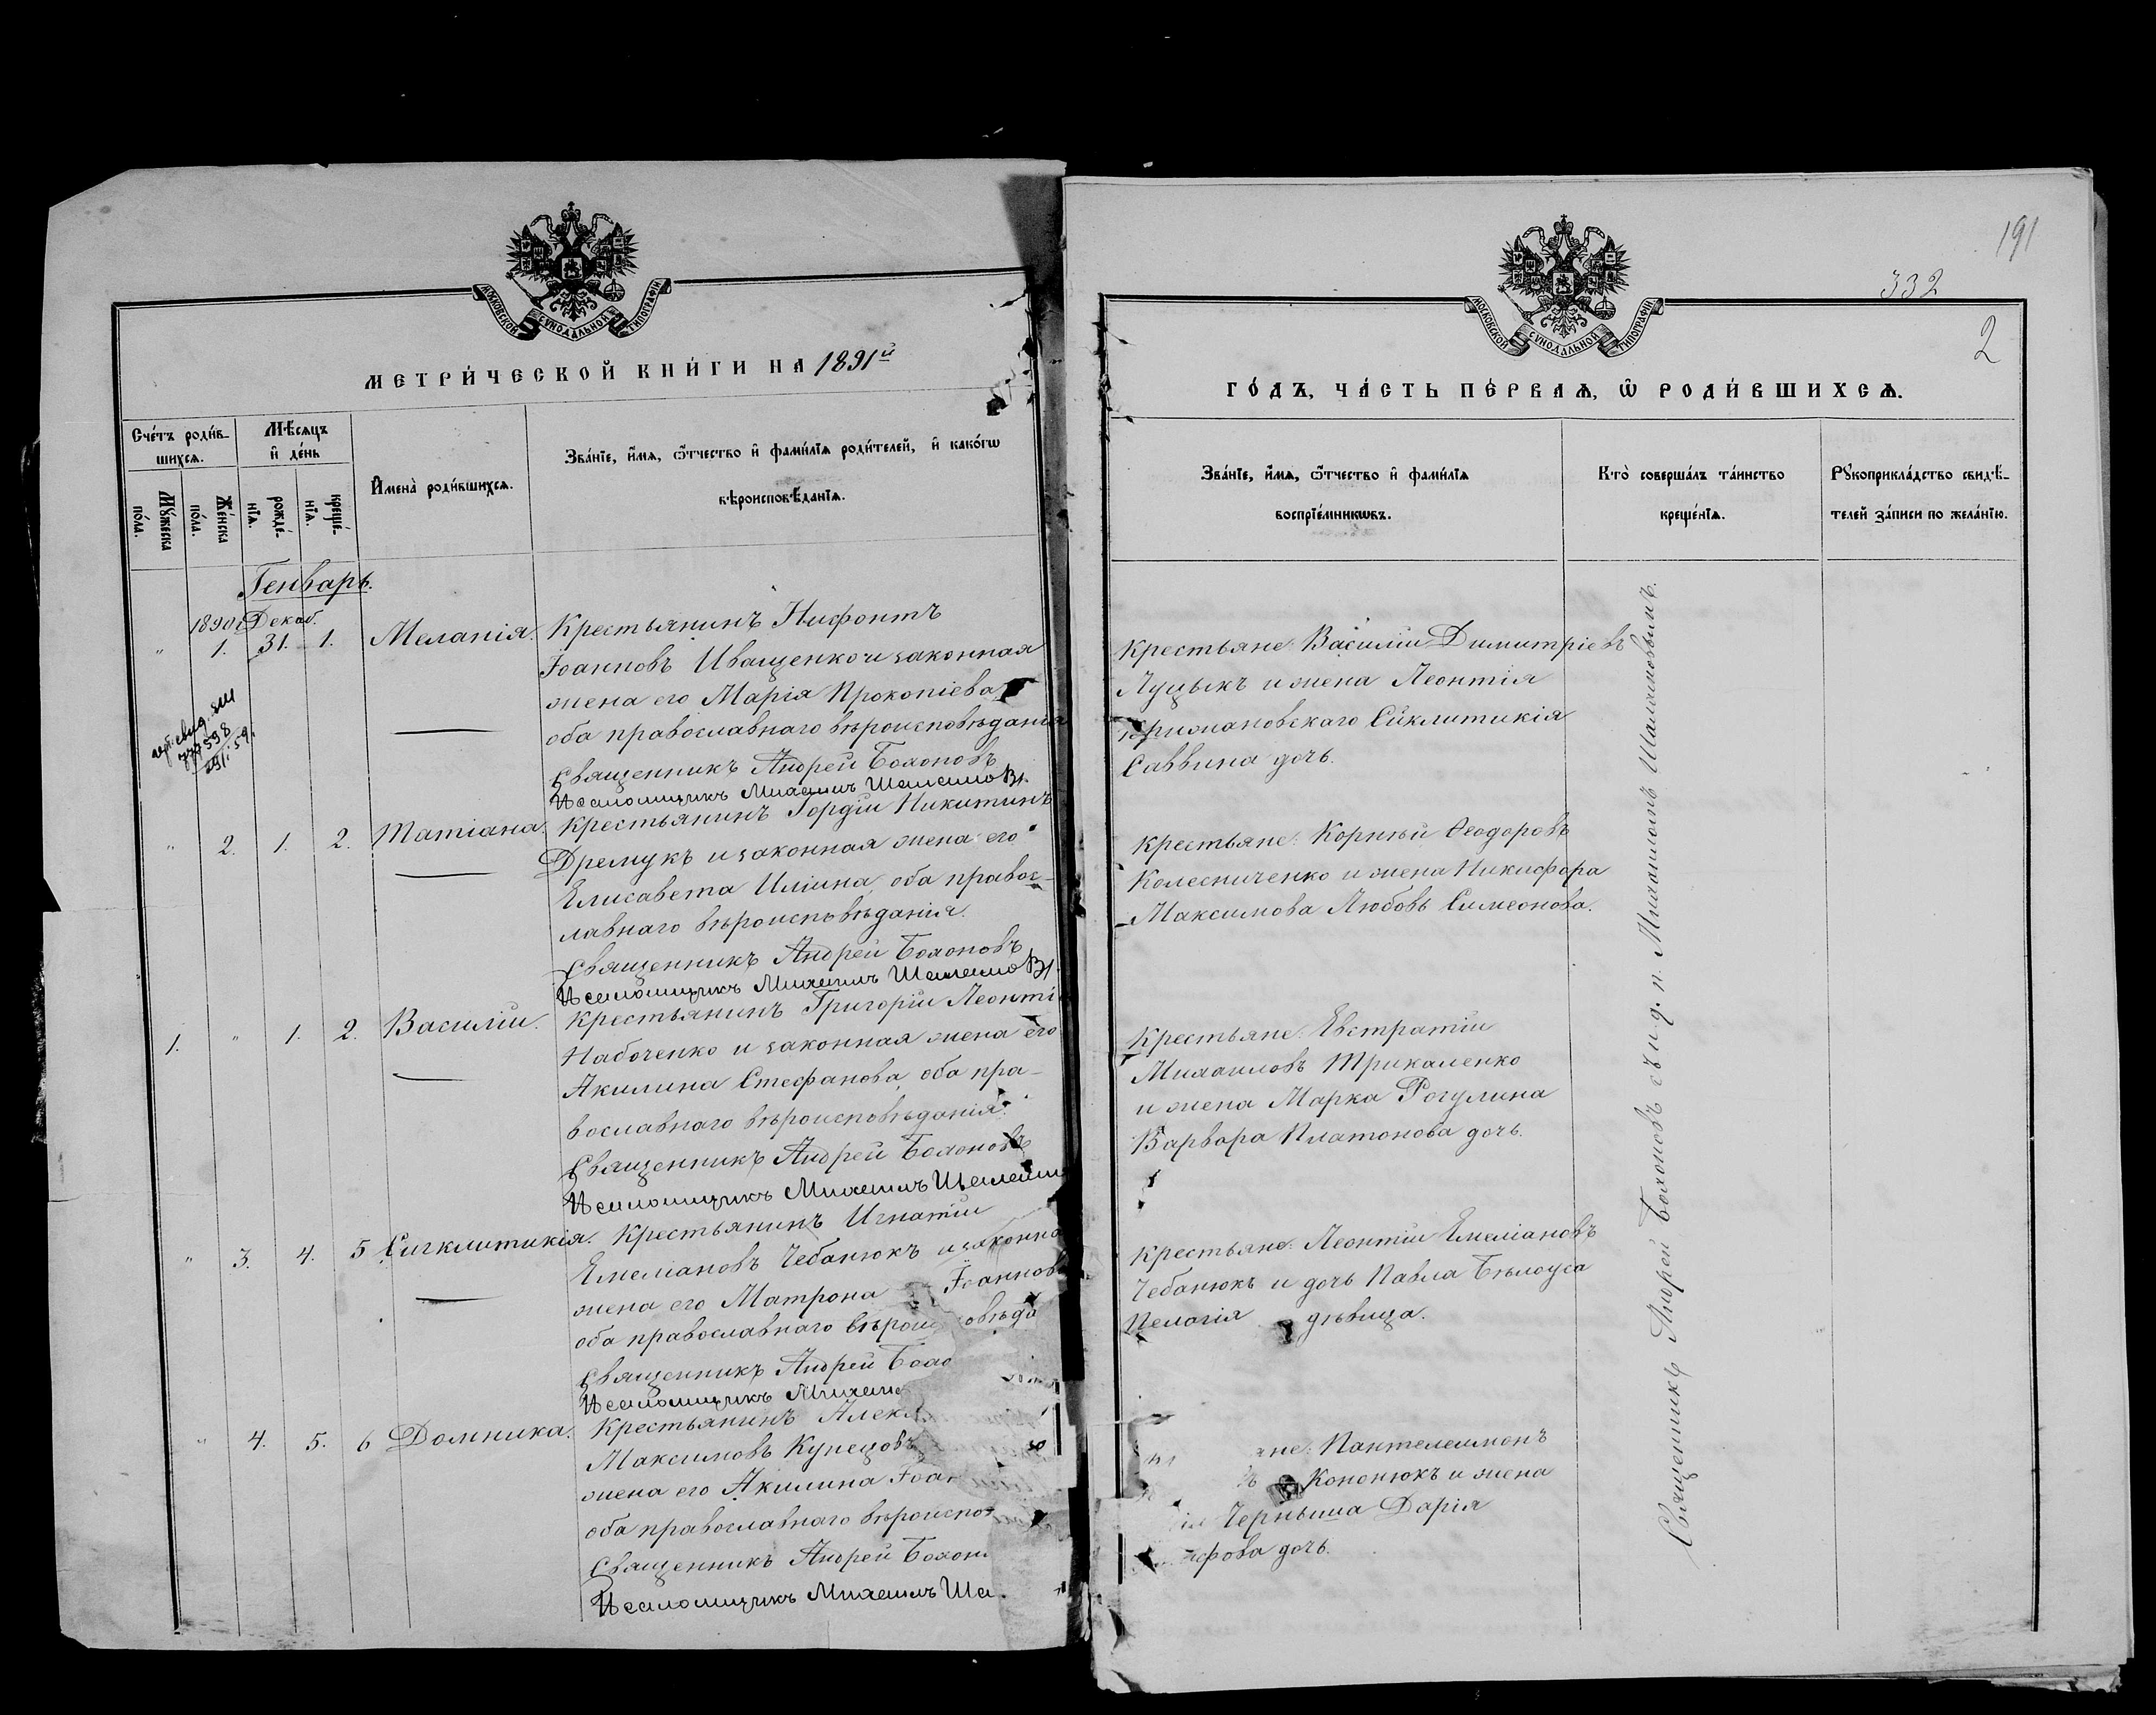 МОСКОВСКОЙ СѴНОДАЛЬНОЙ ТИПОГРАФІИ
МЕТРИ́ЧЕСКОЙ КНИ́ГИ НА 1891й
Сче́тъ роди́в-
шихсѧ.
Мѣсѧцъ
и҆ де́нь
Мꙋ́жеска
по́ла.
Же́нска
по́ла.
рожде́-
нїѧ.
креще́-
нїѧ.
И҆мена̀ роди́вшихсѧ.
Зва́нїе, и҆́мѧ, ѻ҆́тчество и҆ фами́лїѧ роди́телей, и҆ како́гѡ
вѣроисповѣ́данїѧ.
Генварь.
1890 Декаб.
" 1. 31. 1. Меланія.
Крестьянинъ Нифонтъ
Іоанновъ Иващенко и законная
жена его Марія Прокопіева,
оба православнаго вѣроисповѣданія
Священникъ Андрей Бохоновъ
Псаломщикъ Михаилъ
777598
" 2. 1. 2. Татіана.
Крестьянинъ Гордій Никитинъ
Дремукъ и законная жена его
Елисавета Иліина, оба правос-
лавнаго вѣроисповѣданія.
Священникъ Андрей Бохоновъ
Псаломщикъ Михаилъ
1. " 1. 2. Василій.
Крестьянинъ Григорій Леонті
Набоченко и законная жена его
Акилина Стефанова, оба пра-
вославнаго вѣроисповѣданія.
Священникъ Андрей Бохоновъ
Псаломщикъ Михаилъ
" 3. 4. 5 Сигклитикія.
Крестьянинъ Игнатій
Емеліановъ Чебанюкъ и законна
жена его Матрона Іоаннов
оба православнаго вѣроис овѣда
Священникъ Андрей Бохо
Псаломщикъ Михаи
" 4. 5. 6 Домника.
Крестьянинъ Алек
Максимовъ Купецовъ
жена его Акилина Іоан
оба православнаго вѣроиспо
Священникъ Андрей Бохон
Псаломщикъ Михаилъ Ша
191
332
2
МОСКОВСКОЙ СѴНОДАЛЬНОЙ ТИПОГРАФІИ
ГО́ДЪ, ЧА́СТЬ ПЕ́РВАѦ, Ѡ҆ РОДИ́ВШИХСѦ.
Зва́нїе, и҆́мѧ, ѻ҆́тчество и҆ фами́лїѧ
воспрїе́мникѡвъ.
Кто̀ соверша́лъ та́инство
креще́нїѧ.
Рꙋкоприкла́дство свидѣ́-
телей за́писи по жела́нїю.
Крестьяне: Василій Димитріевъ
Луцыкъ и жена Леонтія
Крижановскаго Сиклитикія
Саввина дочь.
Крестьяне: Корнѣй Ѳеодоровъ
Колесниченко и жена Никифора
Максимова Любовь Симеонова.
Крестьяне: Евстратій
Михаиловъ Трикаленко
и жена Марка Рогулина
Варвара Платонова дочь.
Крестьяне: Леонтій Емеліановъ
Чебанюкъ и дочь Павла Бѣлоуса
Пелагія дѣвица.
яне: Пантелеимонъ
Кононюкъ и жена
Черныша Дарія
фова дочь.
Священникъ Андрей Бохоновъ съ и. д. п. Михаиломъ Шаламовымъ.